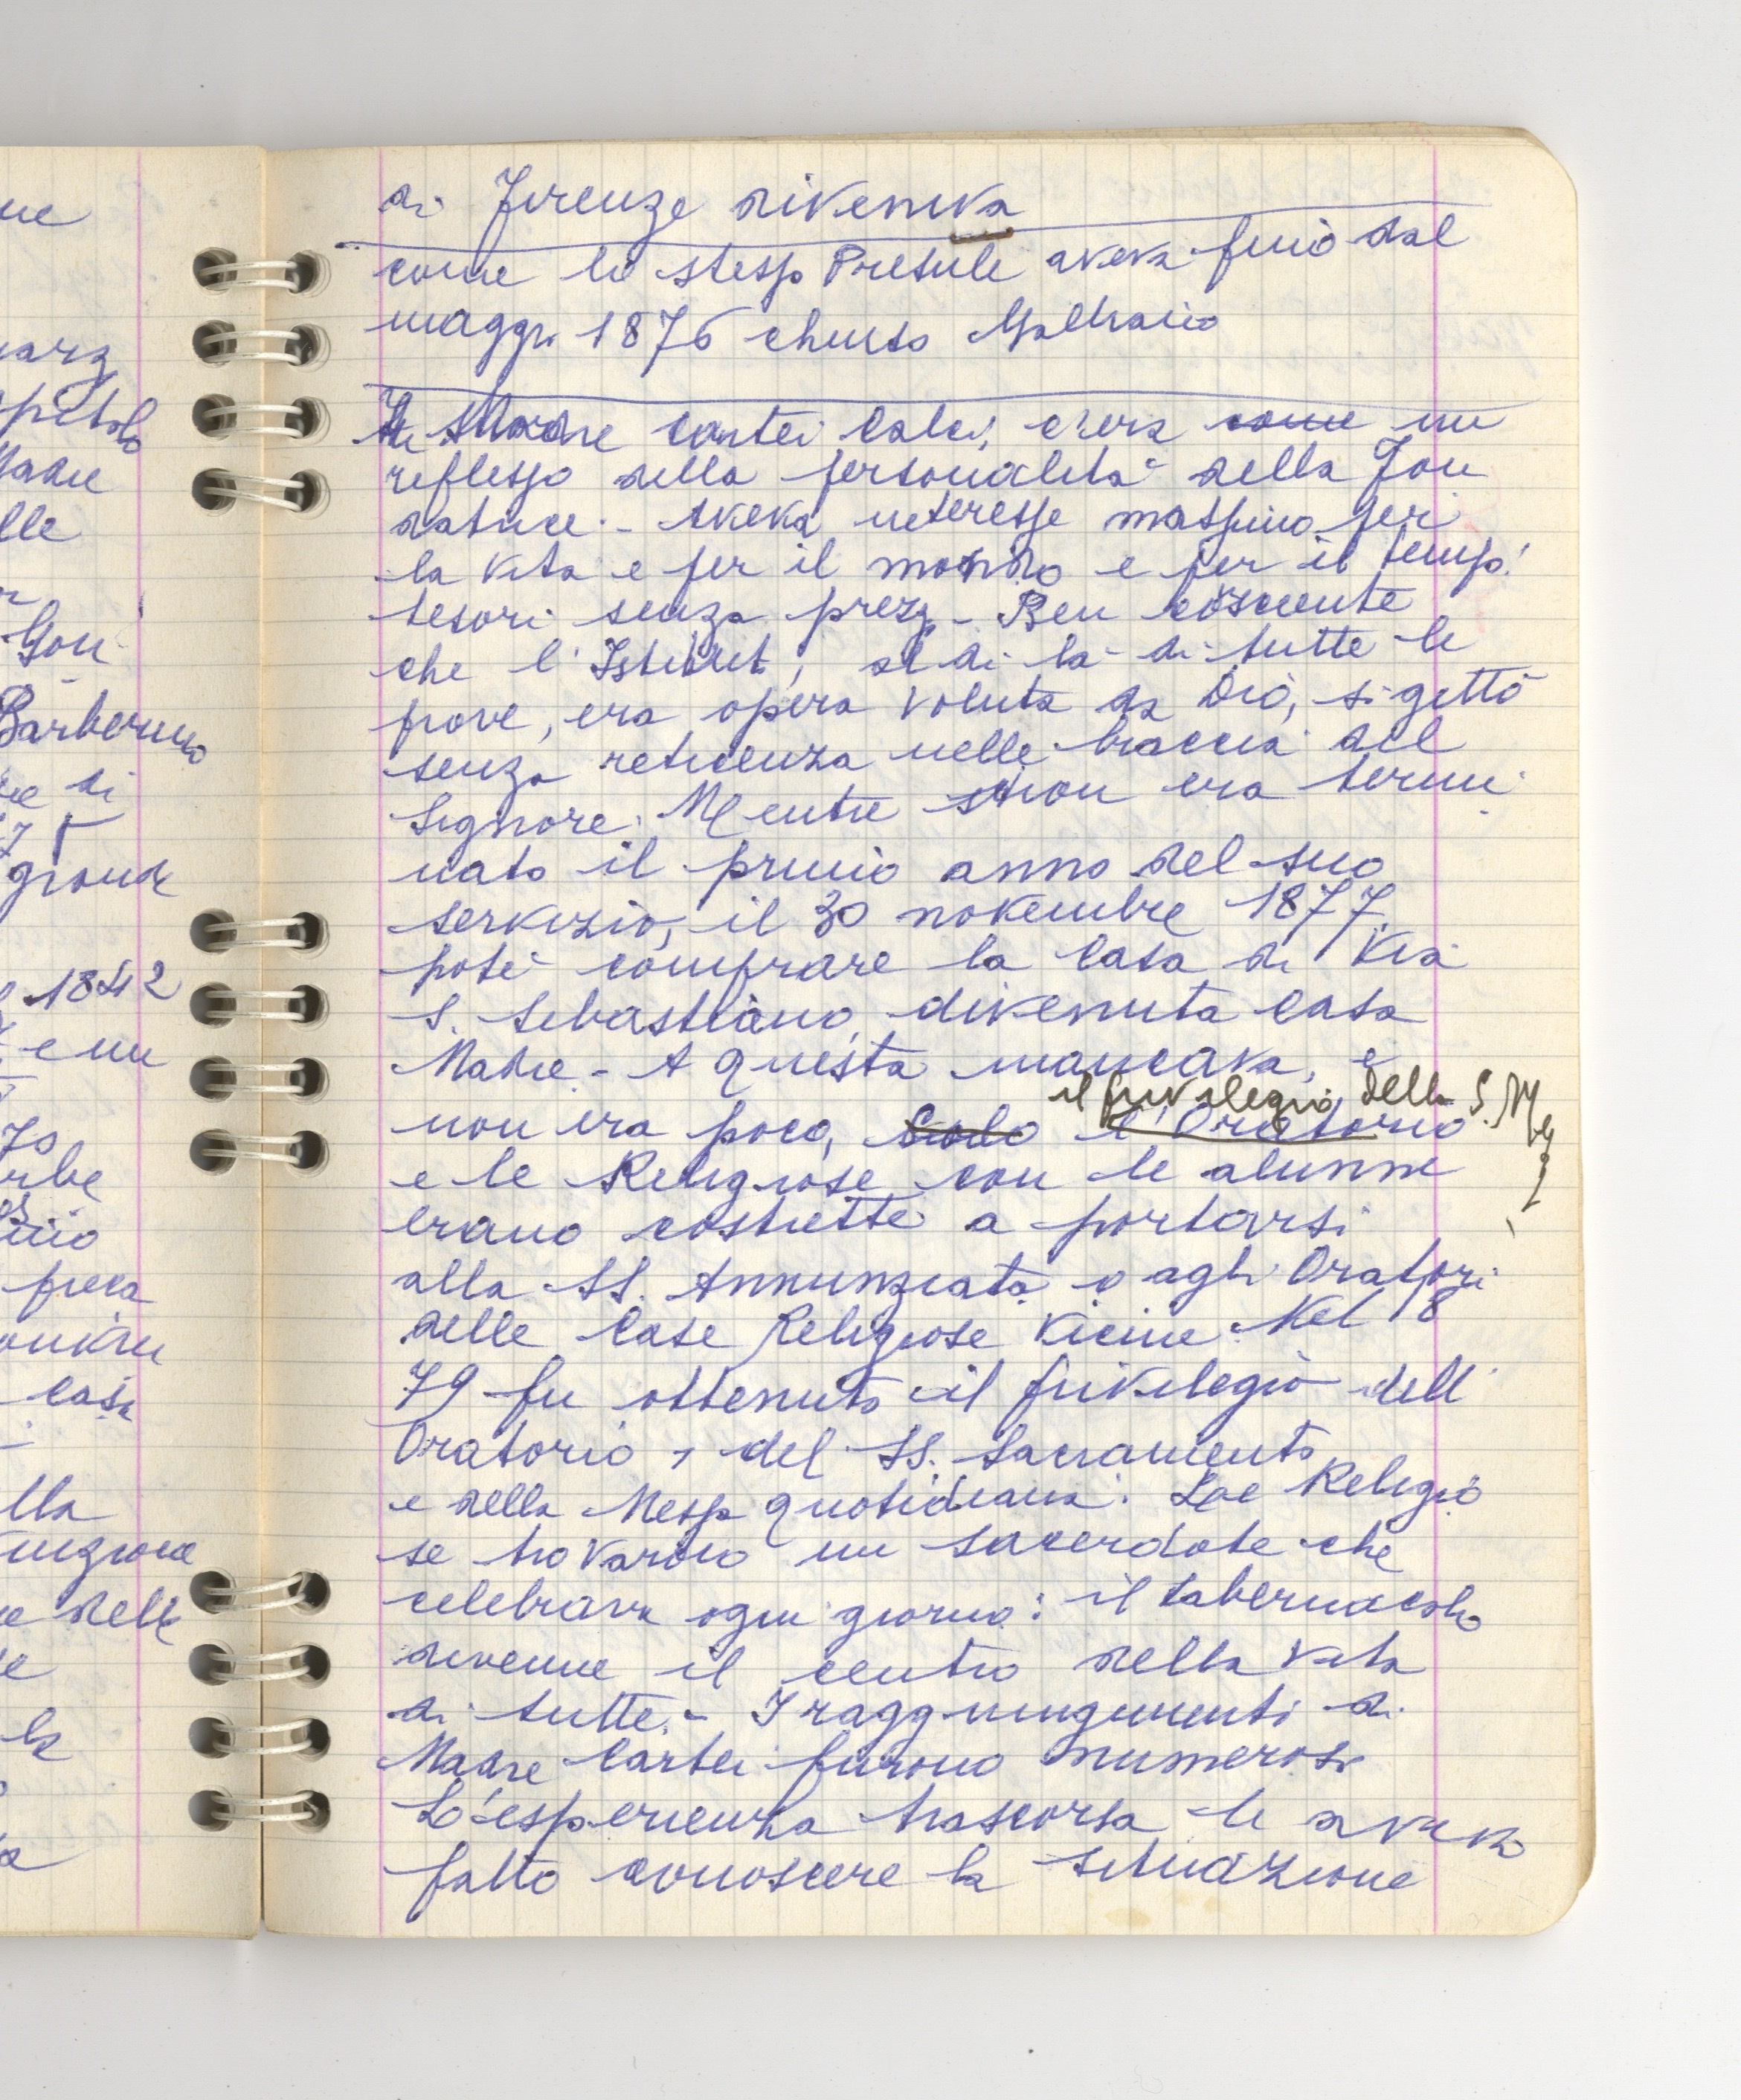 di Firenze riveniva
come lo stesso Presule aveva fino dal
maggio 1876 chiuso
La Madre Cartei Calci, c'era come un
riflesso della personalità della Fon
datrice. - Aveva interesse massimo per
la vita e per il mondo e per il tempo:
tesori senza prezzo - Ben cosciente
che l'Istituto, al di là di tutte le
prove, era opera voluta da Dio, si gettò
senza reticenza nelle braccia del
Signore. Mentre non era termi
nato il primo anno del suo
servizio, il 30 novembre 1877,
poté comprare la Casa di Via
S. Sebastiano, divenuta Casa
Madre. - A questa mancava, e
il privilegio della S. Messa
non era poco, Solo l'Oratorio
e le Religiose con le alunne
erano costrette a portarsi
alla SS. Annunziata o agli Oratori
delle Case Religiose vicine. Nel 18
79 fu ottenuto il privilegio dell'
Oratorio, del SS. Sacramento
e della Messa quotidiana. Le Religio
se trovarono un sacerdote che
celebrava ogni giorno: il tabernacolo
divenne il centro della vita
di tutte. - I raggiungimenti di
Madre Cartei furono numerosi
L'esperienza trascorsa le aveva
fatto conoscere la situazione
ue
Madre
lle
Barberino
di
1842
e un
70
lla
dell